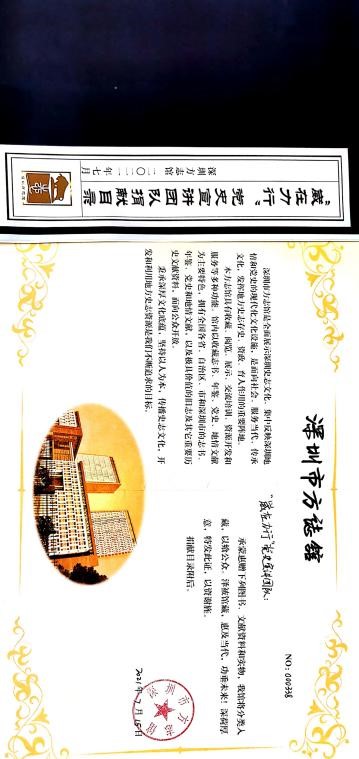 “葳在力行”
党史宣讲团队捐献目录
深圳市方志馆
二〇二一年七月
深圳市方志馆是全面展示深圳史志文化、集中反映深圳地
情和党史的现代化文化设施，是面向社会、服务当代、传承
文化、发挥地方史志存史、资政、育人作用的重要阵地。
本方志馆具有收藏、阅览、展示、交流培训、资源开发和
服务等多种功能。馆内以收藏志书、年鉴、党史、地情文献
为主要特色，拥有全国各省、自治区、市和深圳市的志书、
年鉴、党史和地情文献，以及极具价值的旧志及其它重要历
史文献资料，面向公众开放。
秉承深厚文化底蕴，坚持以人为本，传播史志文化，开
发和利用地方史志资源是我们不断追求的目标。
深圳市方志馆
NO：000338
“葳在力行”党史宣讲团队：
承蒙惠赠下列图书、文献资料和实物，我馆将分类入
藏，以飨公众。泽被馆藏，惠及当代，功垂未来！深荷厚
意，特发此证，以资谢旌。
捐献目录附后。
2021年7月15日
深圳市方志馆